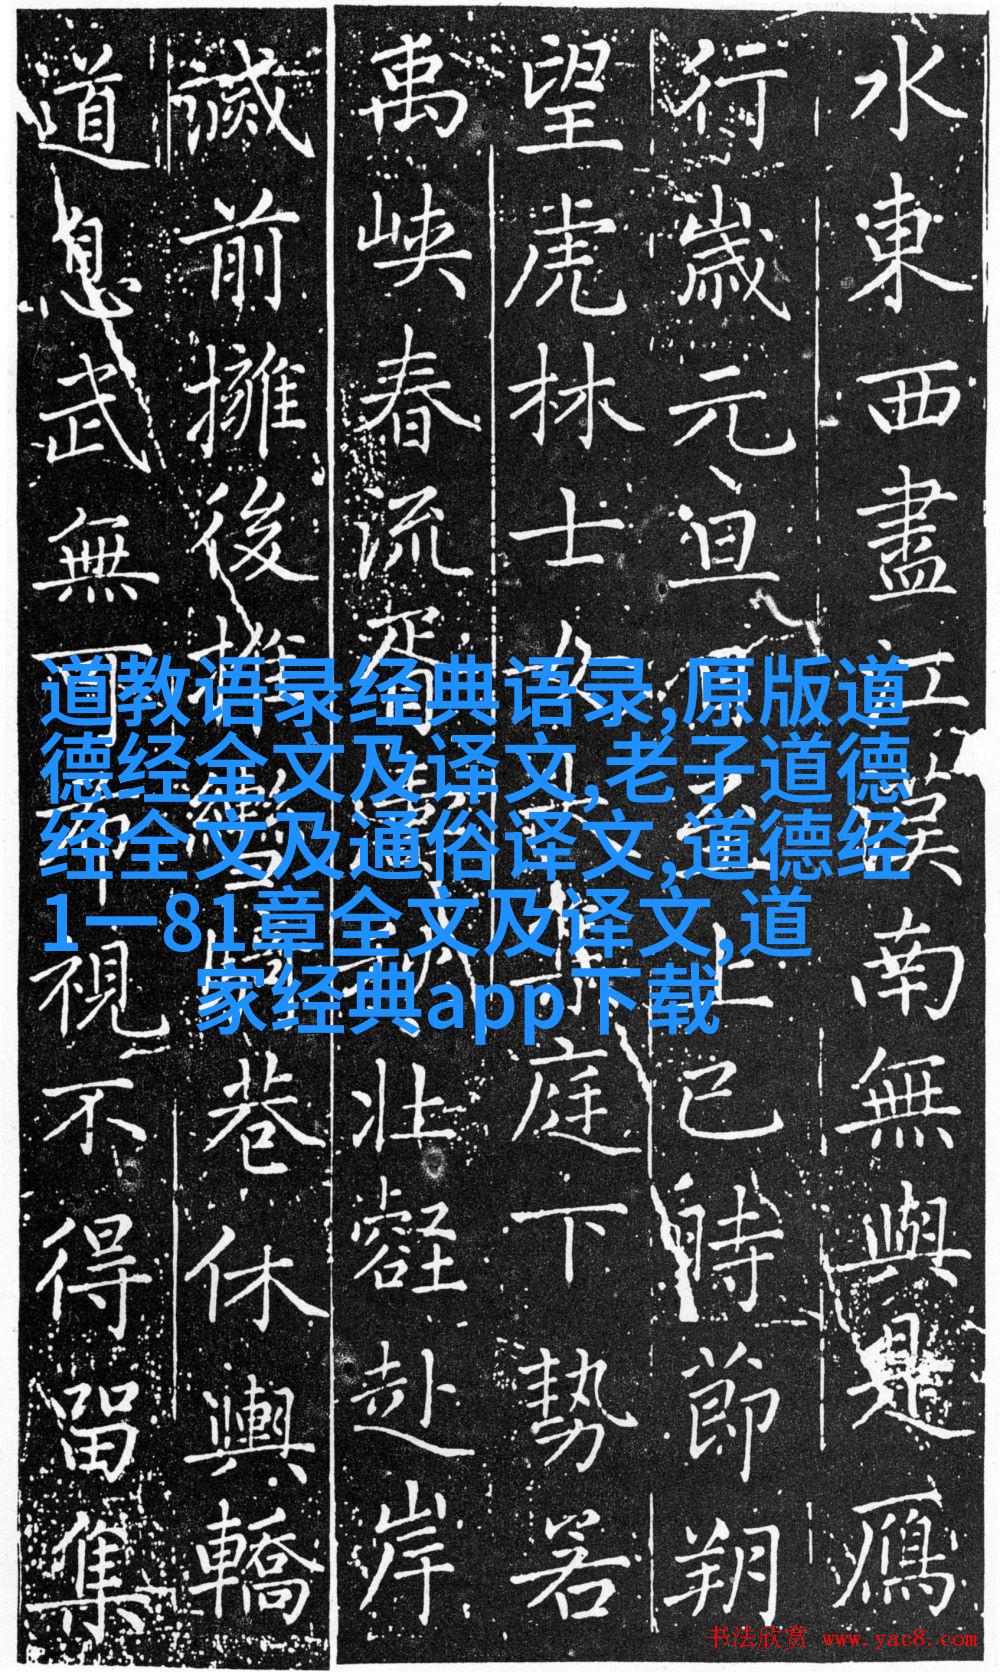 水東西盡江南無與是鴈
行歲元旦上巳時節朔
望虎林士女庭下勢若
禹峽春流胥壯壑赴岸
前擁後推巷休輿轎
道息武無可視不得留集
道教语录经典语录,原版道
德经全文及译文,老子道德
经全文及通俗译文,道德经
1一81章全文及译文,道
家经典app下载
书法欣赏 www.yac8.com